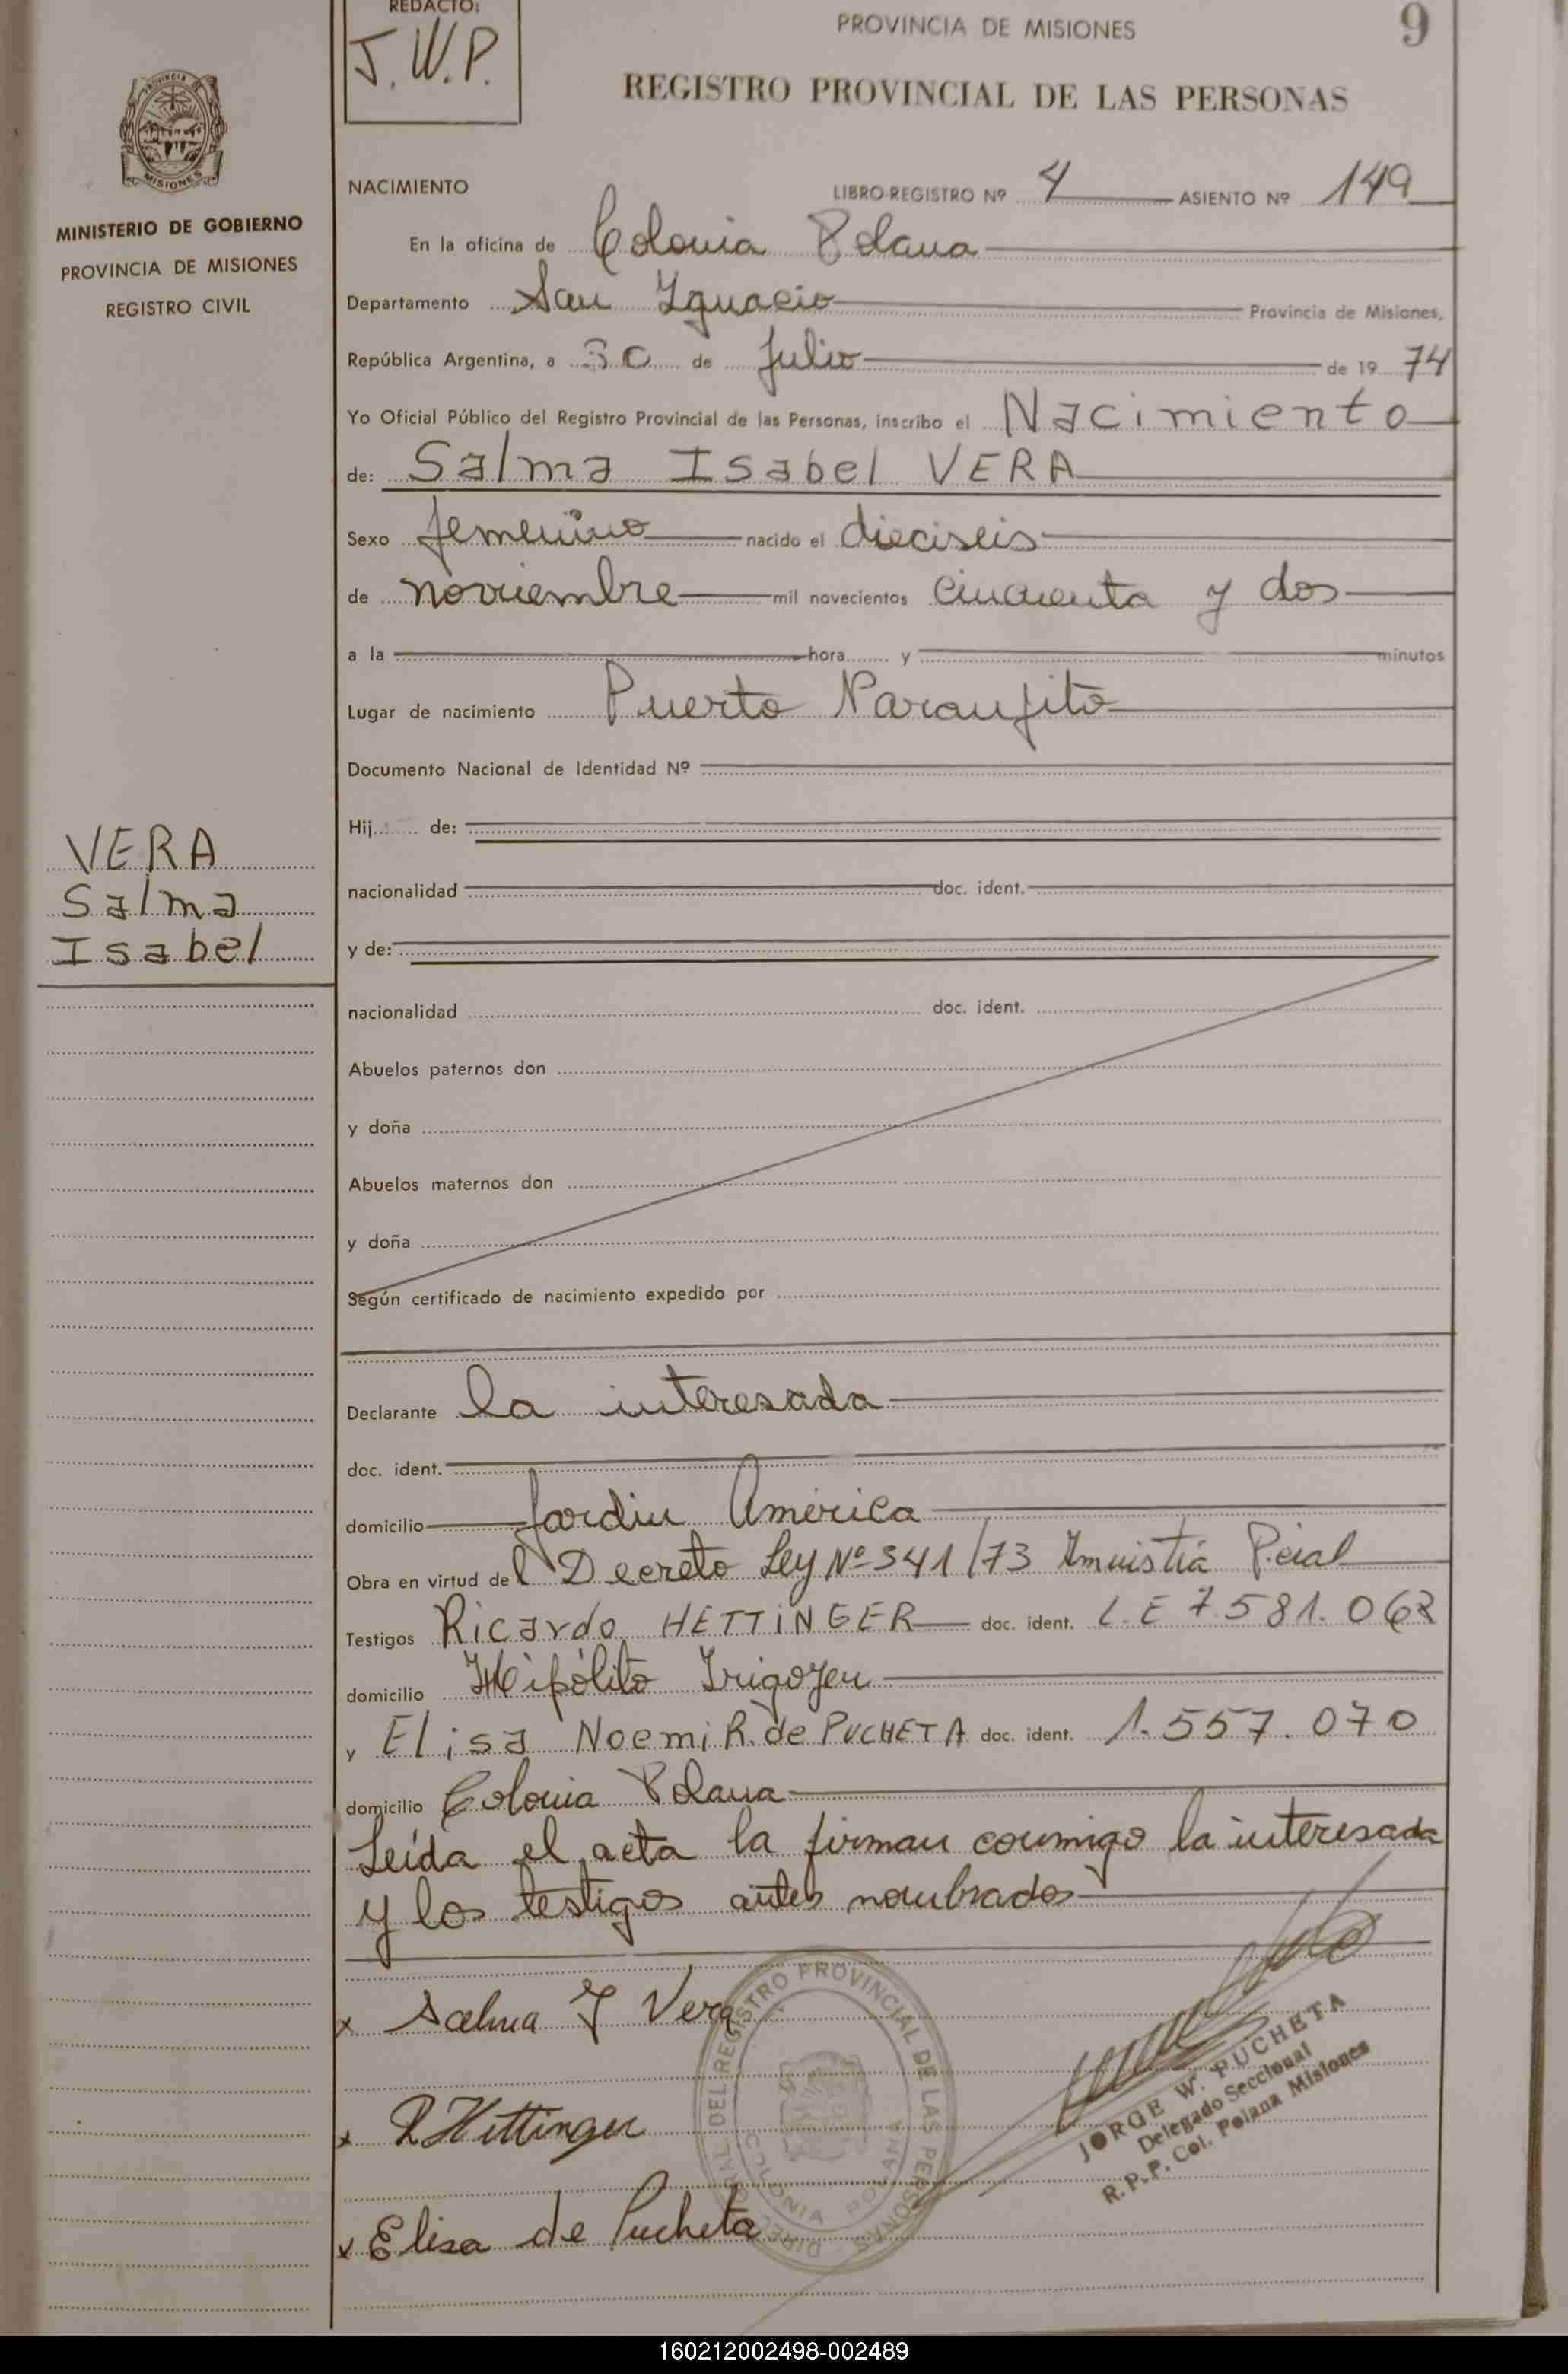 REDACTO:
J.W.P.
PROVINCIA DE MISIONES
9
REGISTRO PROVINCIAL DE LAS PERSONAS
PROVINCIA
MISIONES
MINISTERIO DE GOBIERNO
PROVINCIA DE MISIONES
REGISTRO CIVIL
NACIMIENTO
LIBRO-REGISTRO Nº 4 ASIENTO Nº 149
En la oficina de Colonia Polana
Departamento San Ygnacio Provincia de Misiones,
República Argentina, a 30 de Julio de 19 74
Yo Oficial Público del Registro Provincial de las Personas, inscribo el Nacimiento
de: Salma Isabel VERA
Sexo femenino nacido el dieciseis
de noviembre mil novecientos cincuenta y dos
a la hora y minutos
Lugar de nacimiento Puerto Naranjito
Documento Nacional de Identidad Nº
Hij de:
VERA
Salma
Isabel
nacionalidad doc. ident.
y de:
nacionalidad doc. ident.
Abuelos paternos don
y doña
Abuelos maternos don
y doña
Según certificado de nacimiento expedido por
Declarante la interesada
doc. ident.
domicilio Jardin América
Obra en virtud del Decreto Ley Nº 341/73 Amnistía P.cial
Testigos Ricardo HETTINGER doc. ident. L.E 7.581.062
domicilio Hipólito Irigoyen
y Elisa Noemi R. de PUCHETA doc. ident. 1.557.070
domicilio Colonia Polana
Leída el acta la firman conmigo la interesada
y los testigos antes nombrados
x Salma I Vera
x R Hettinger
x Elisa de Pucheta
DEL REGISTRO PROVINCIAL DE LAS PERSONAS
COLONIA POLANA
JORGE W. PUCHETA
Delegado Seccional
R. P. P. Col. Polana Misiones
160212002498-002489